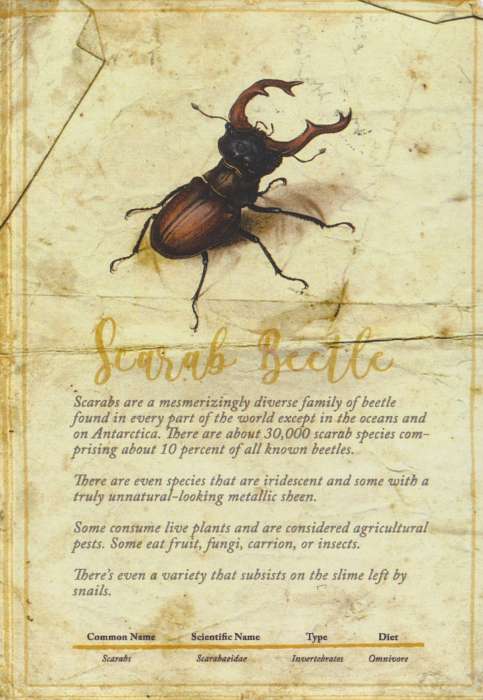 Scarab Beetle
Scarabs are a mesmerizingly diverse family of beetle
found in every part of the world except in the oceans and
on Antarctica. There are about 30,000 scarab species com-
prising about 10 percent of all known beetles.
There are even species that are iridescent and some with a
truly unnatural-looking metallic sheen.
Some consume live plants and are considered agricultural
pests. Some eat fruit, fungi, carrion, or insects.
There's even a variety that subsists on the slime left by
snails.
Common Name Scientific Name Type Diet
Scarabs Scarabaeidae Invertebrates Omnivore